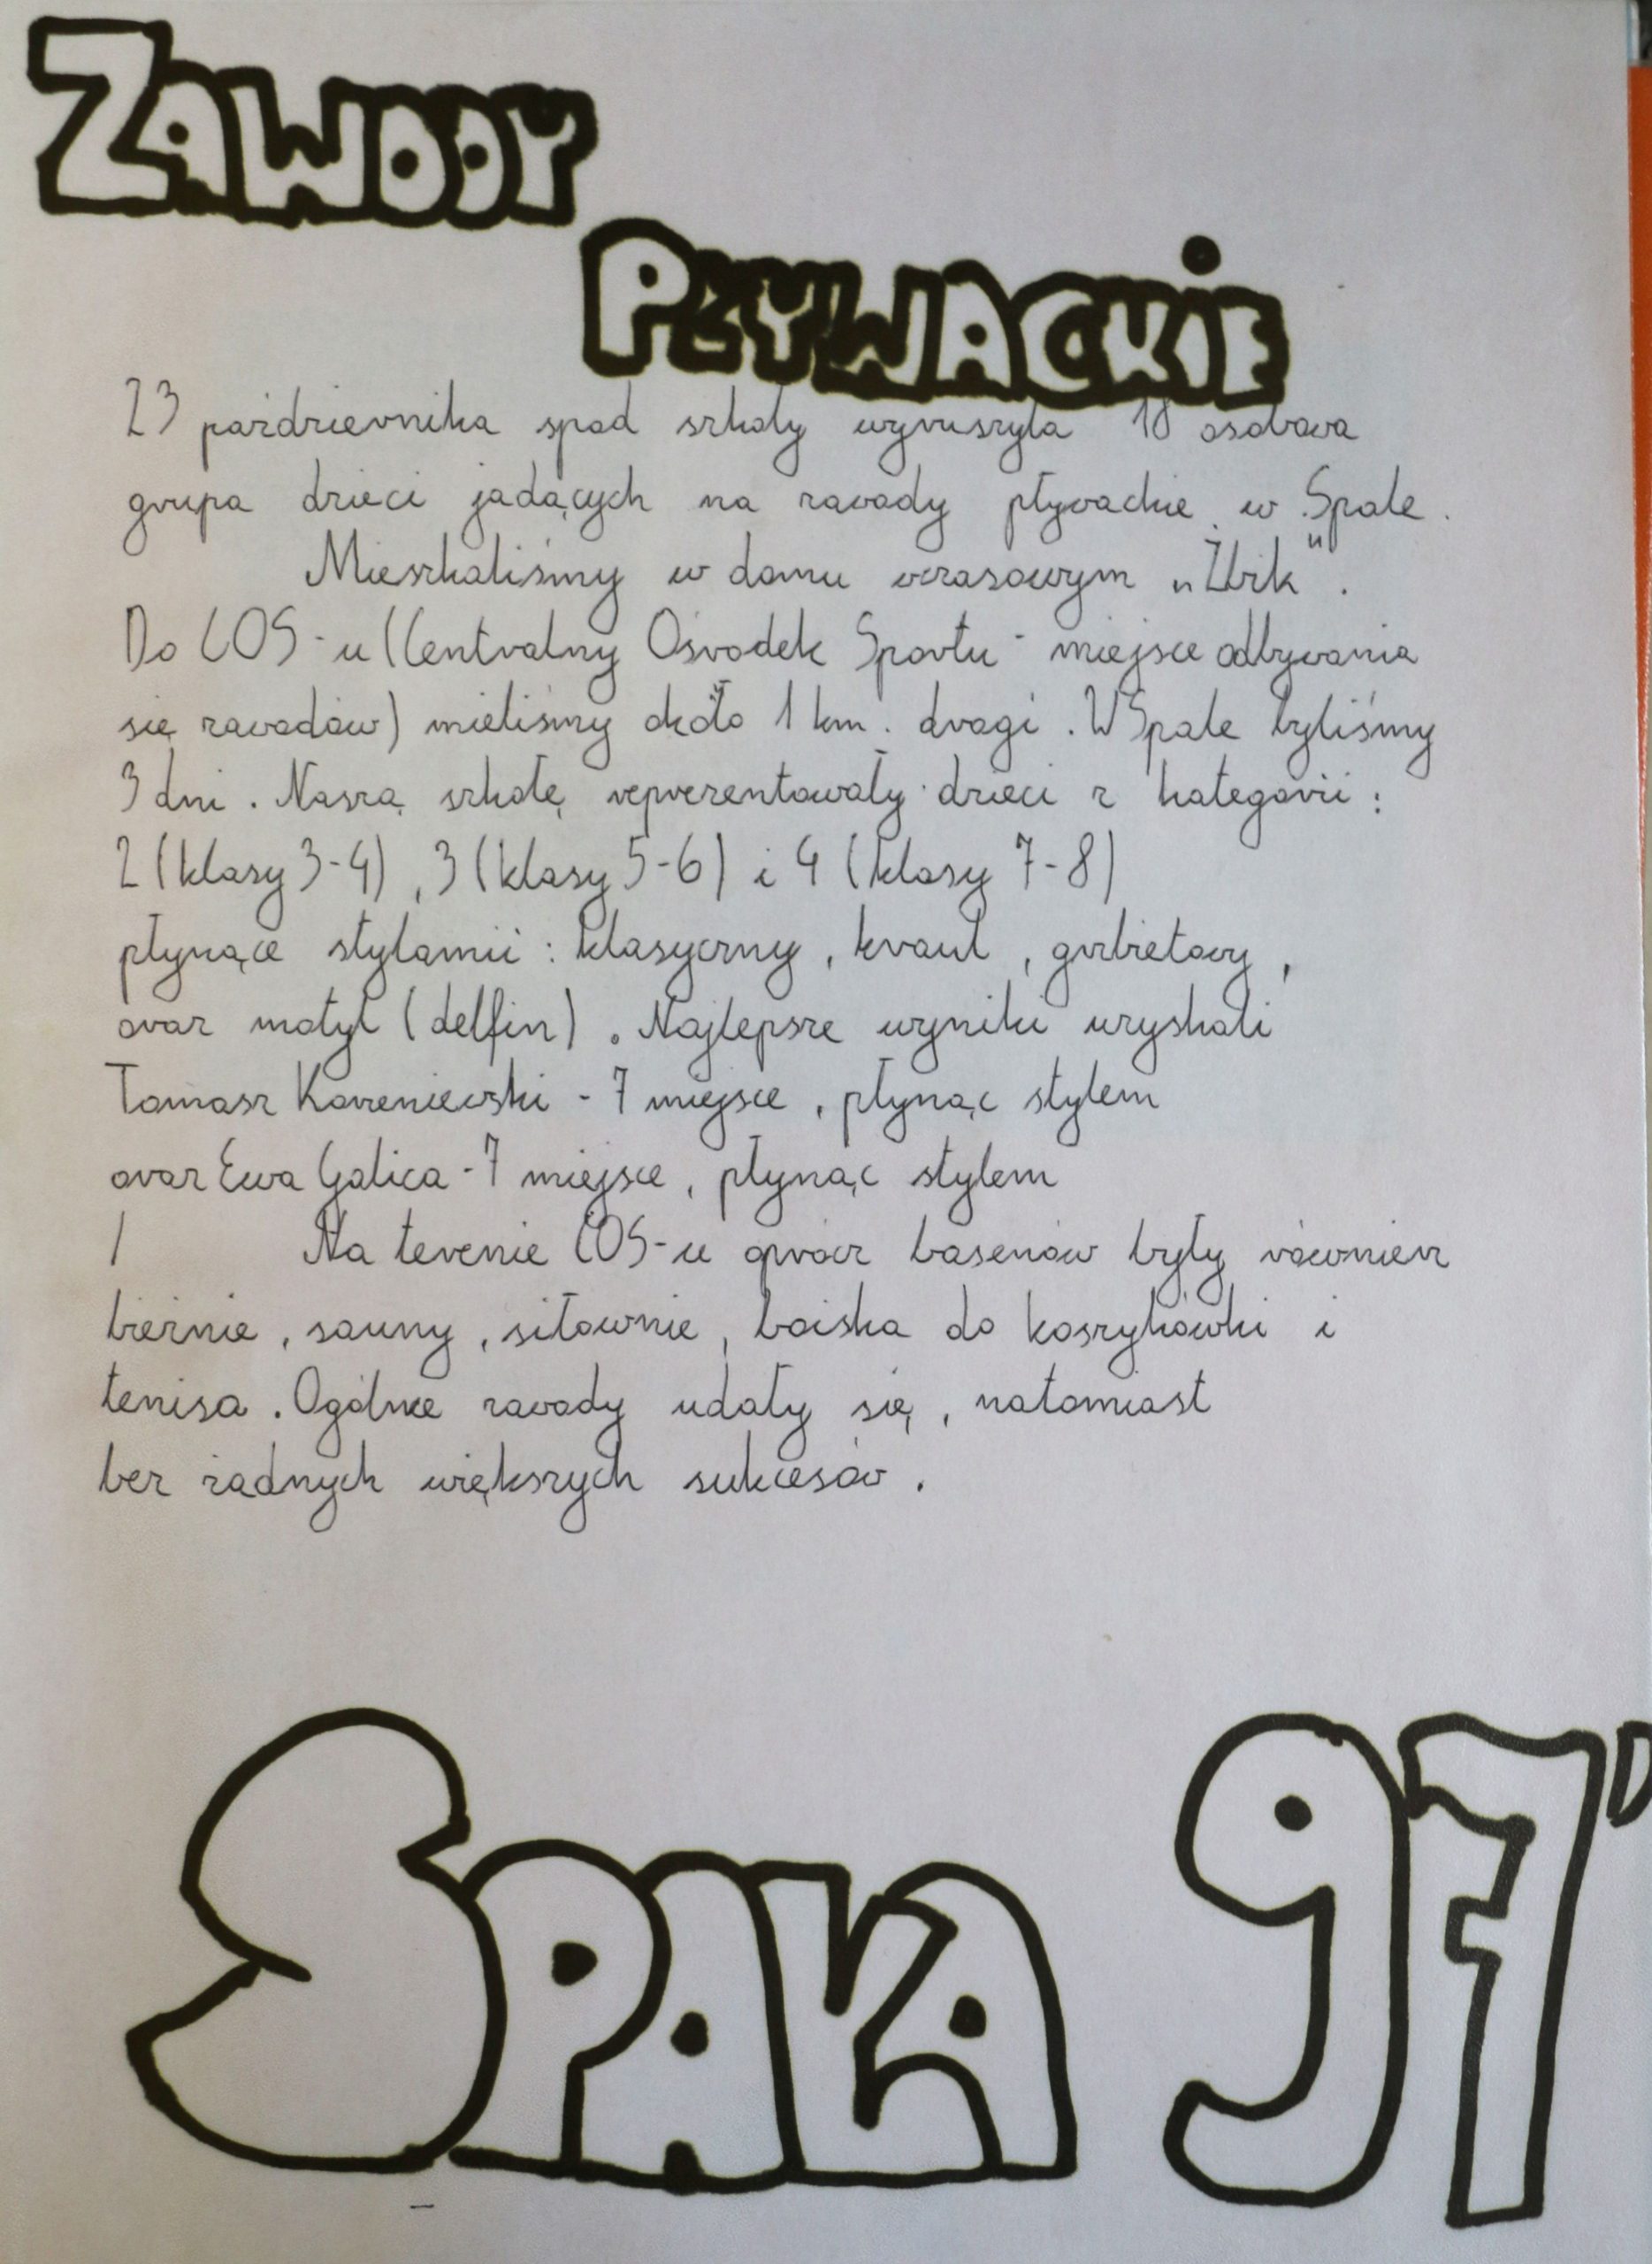 ZAWODY
PŁYWACKIE
23 października spod szkoły wyruszyła 18 osobowa
grupa dzieci jadących na zawody pływackie w Spale.
Mieszkaliśmy w domu wczasowym „Żbik".
Do COS-u (Centralny Ośrodek Sportu - miejsce odbywania
się zawodów) mieliśmy około 1 km. drogi. W Spale byliśmy
3 dni. Naszą szkołę reprezentowały dzieci z kategorii:
2 (klasy 3-4), 3 (klasy 5-6) i 4 (klasy 7-8)
płynące stylamii: klasyczny, kraul, grzbietowy,
oraz motyl (delfin). Najlepsze wyniki uzyskali
Tomasz Korzeniewski - 7 miejsce, płynąc stylem
oraz Ewa Galica - 7 miejsce, płynąc stylem
Na terenie COS-u oprócz basenów były równierz
bieżnie, sauny, siłownie, boiska do koszykówki i
tenisa. Ogólnie zawody udały się, natomiast
bez żadnych większych sukcesów.
SPAŁA 97'